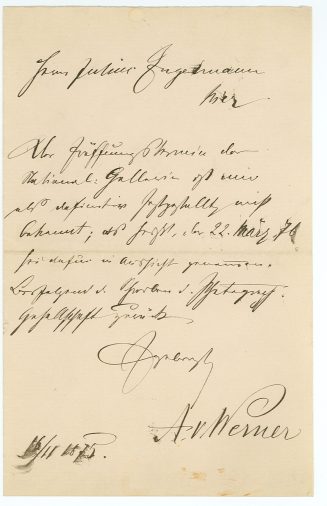 Herrn Julius Engelmann
hier.
Der Eröffnungstermin der
National-Gallerie ist mir
als definitiv festgestellt nicht
bekannt; es heißt, der 22. März 76
sei dafür in Aussicht genommen.
Beifolgend d. Schreiben d. Photograph.
Gesellschaft zurück
Ergebenst
A. v. Werner
11 1875.